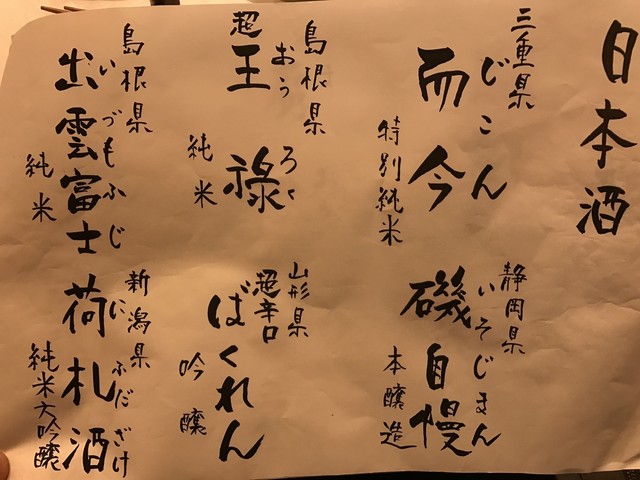 日本酒
三重県
じこん
而今
特別純米
静岡県
いそじまん
磯自慢
本醸造
島根県
おうろく
超
王祿
純米
山形県
超辛口
ばくれん
吟醸
島根県
いづもふじ
出雲富士
純米
新潟県
にふだざけ
荷札酒
純米大吟醸